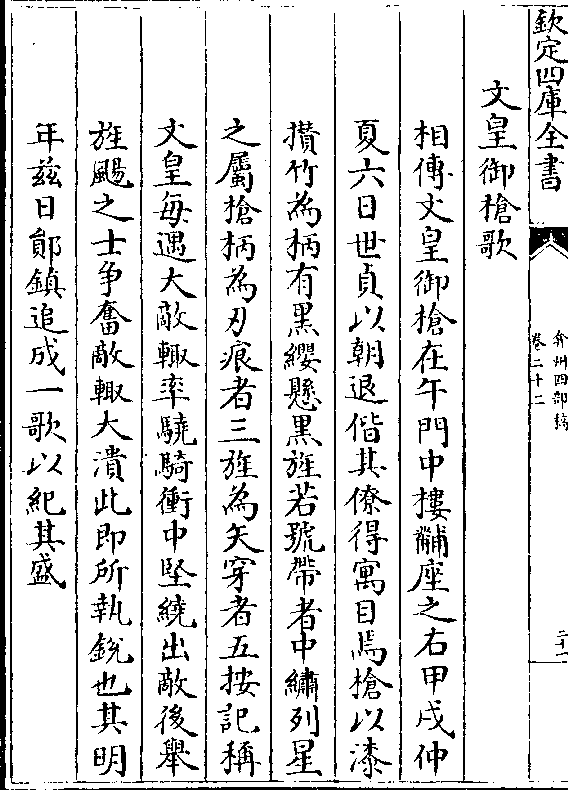 欽定四庫全書
弇州四部稿
卷二十二
二十一
文皇御槍歌
相傳文皇御槍在午門中樓黼座之右甲戌仲
夏六日世貞以朝退偕其僚得寓目焉槍以漆
攢竹為柄有黑纓懸黑旌若號帶者中繡列星
之屬槍柄為刃痕者三旌為矢穿者五按記稱
文皇每遇大敵輙率驍騎衝中堅繞出敵後舉
旌颺之士争奮敵輙大潰此即所執銳也其明
年兹日鄖鎮追成一歌以紀其盛